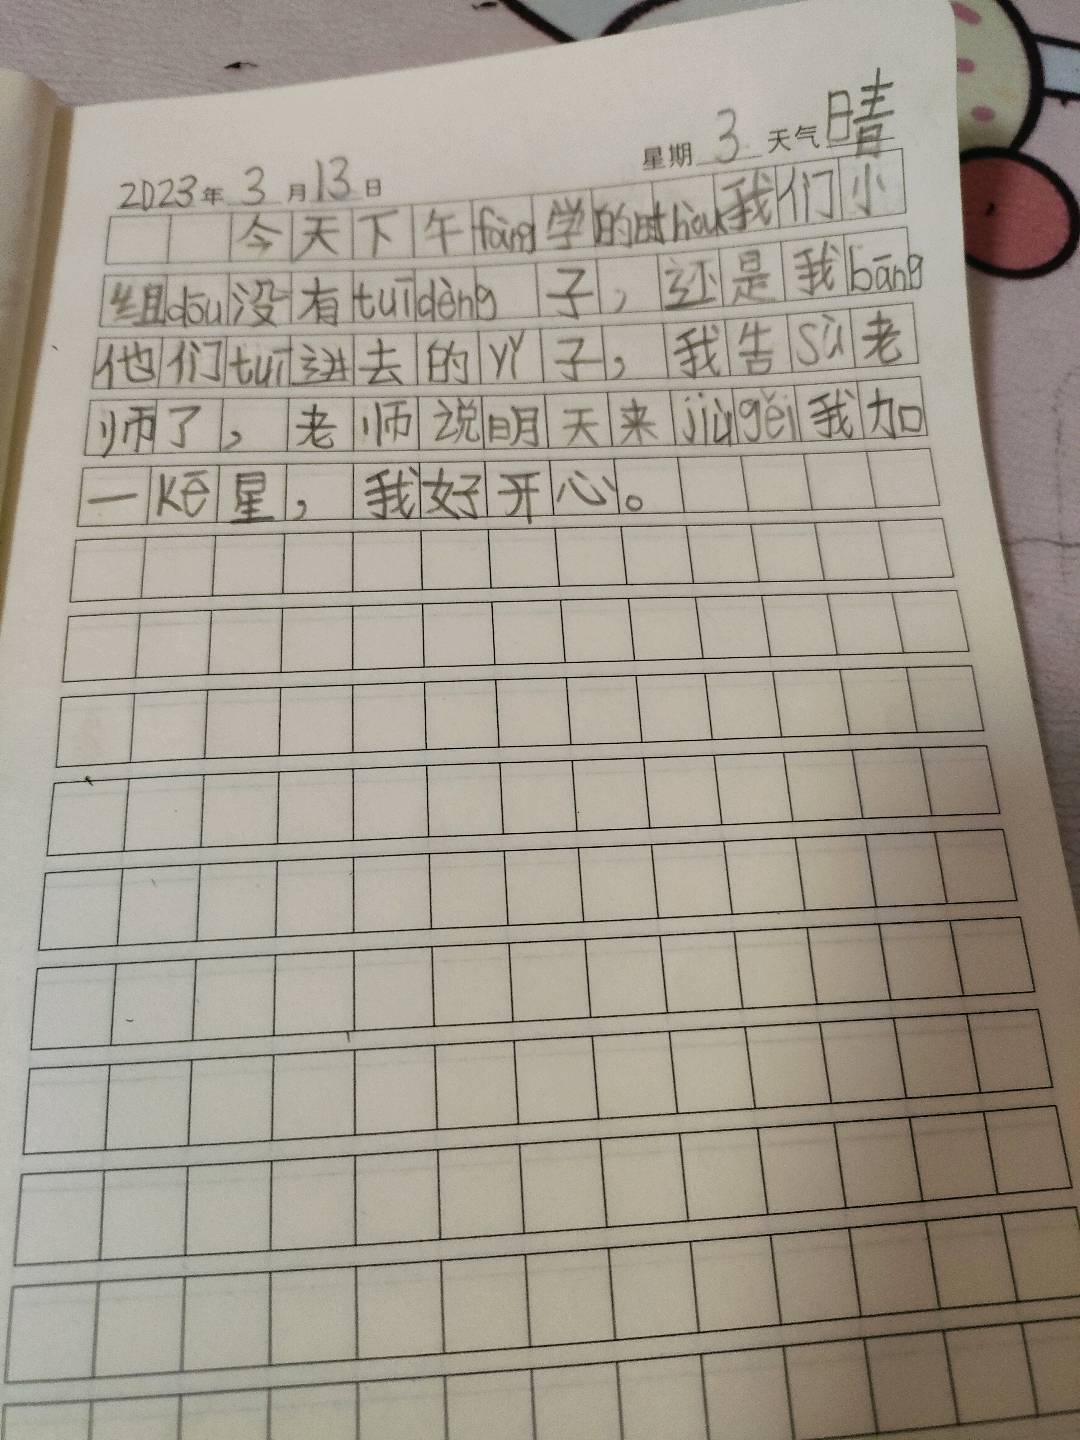 2023年3月13日 星期3 天气晴
今天下午fàng学的时hòu我们小
组dōu没有tuīdèng子，还是我bāng
他们tuī进去的yǐ子，我告sù老
师了，老师说明天来jiùgěi我加
一kē星，我好开心。